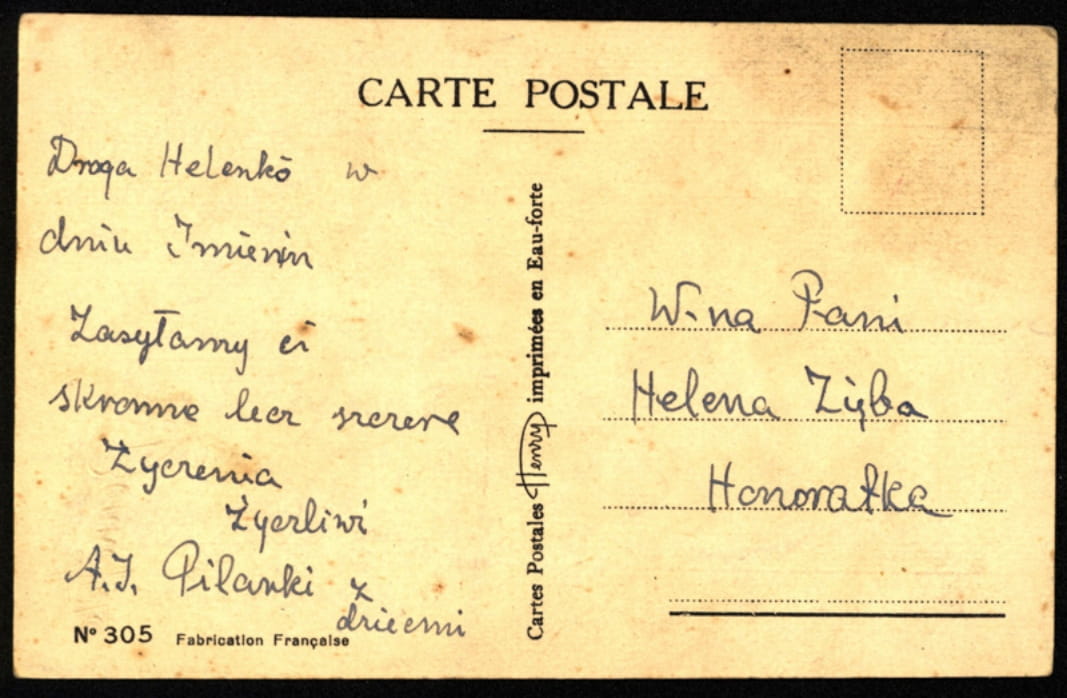 CARTE POSTALE
Droga Helenko w
dniu Imienin
Zasyłamy ci
skromne lecz szczere
Życzenia
Życzliwi
A.J. Pilarski z
dziećmi
Nº 305 Fabrication Française
Cartes Postales Henry imprimées en Eau-forte
W-na Pani
Helena Zięba
Honoratka